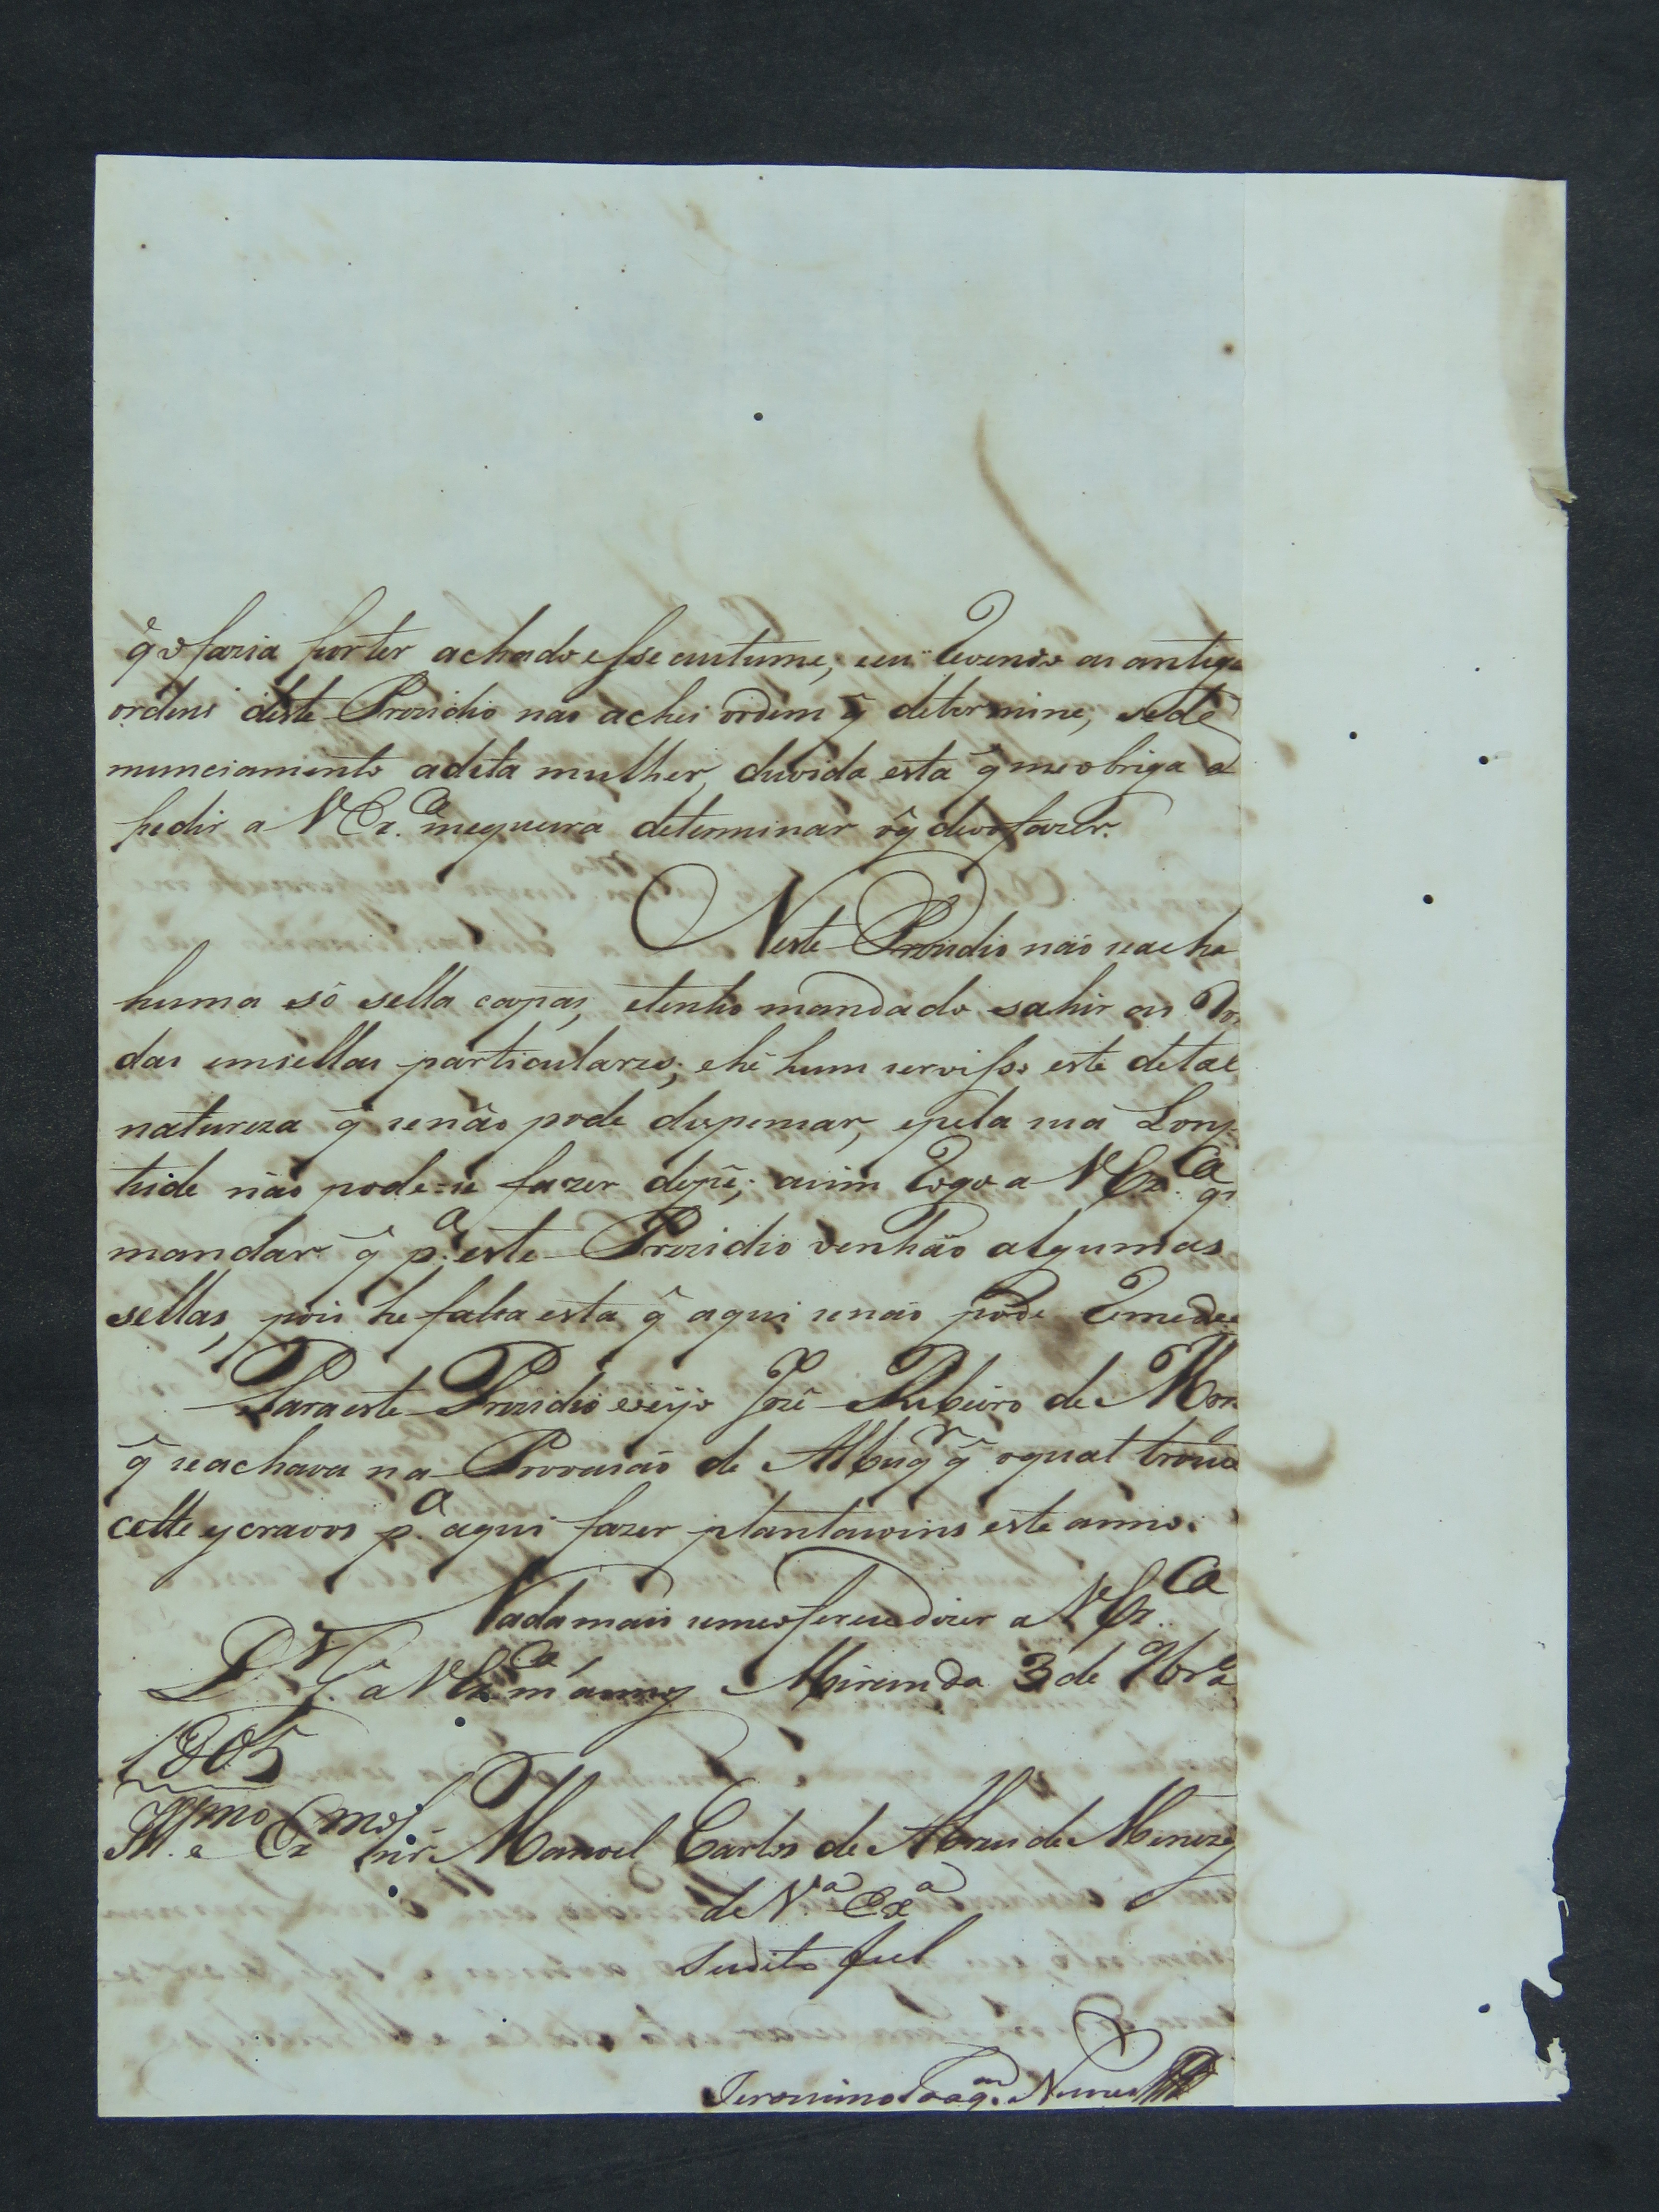 q̃ o fazia por ter achado esse custume; e eu revendo as antigas
ordens deste Prezidio nao achei ordem q̃ determine, se dê
municiamento adita mulher, duvida esta q̃ me obriga a
pedir a V Ex.ca me queira determinar oq̃ devo fazer.
Neste Prezidio não se acha
huma só sella capaz, etenho mandado sahir as Ron
das em sellas particulares; ehé hum servisso este detal
natureza q̃ senão pode dispensar, epela sua Long
tude não pode=se fazer dipé; asim Rogo a V Ex.ca
mandar q̃ p.a este Prezidio venhão algumas
sellas, pois he falta esta q̃ aqui senão pode Remedea
Para este Prezidio veijo José Ribeiro de
q̃ se achava na Provoasão de Albuqr.q̃ o qual trouxe
cette escravos p.a aqui fazer plantasoins este anno.
Nada mais seme oferese dizer a V Ex.ca
D.s G.e a V Ex.ca m.s annos Miranda 3 de 9br.o
1805
Ill.mo e Ex.mo Snr. Manoel Carlos de Abreu de Menezes
de V.a Ex.a
Sudito fiel
Jeronimo Joaq.m Nunes